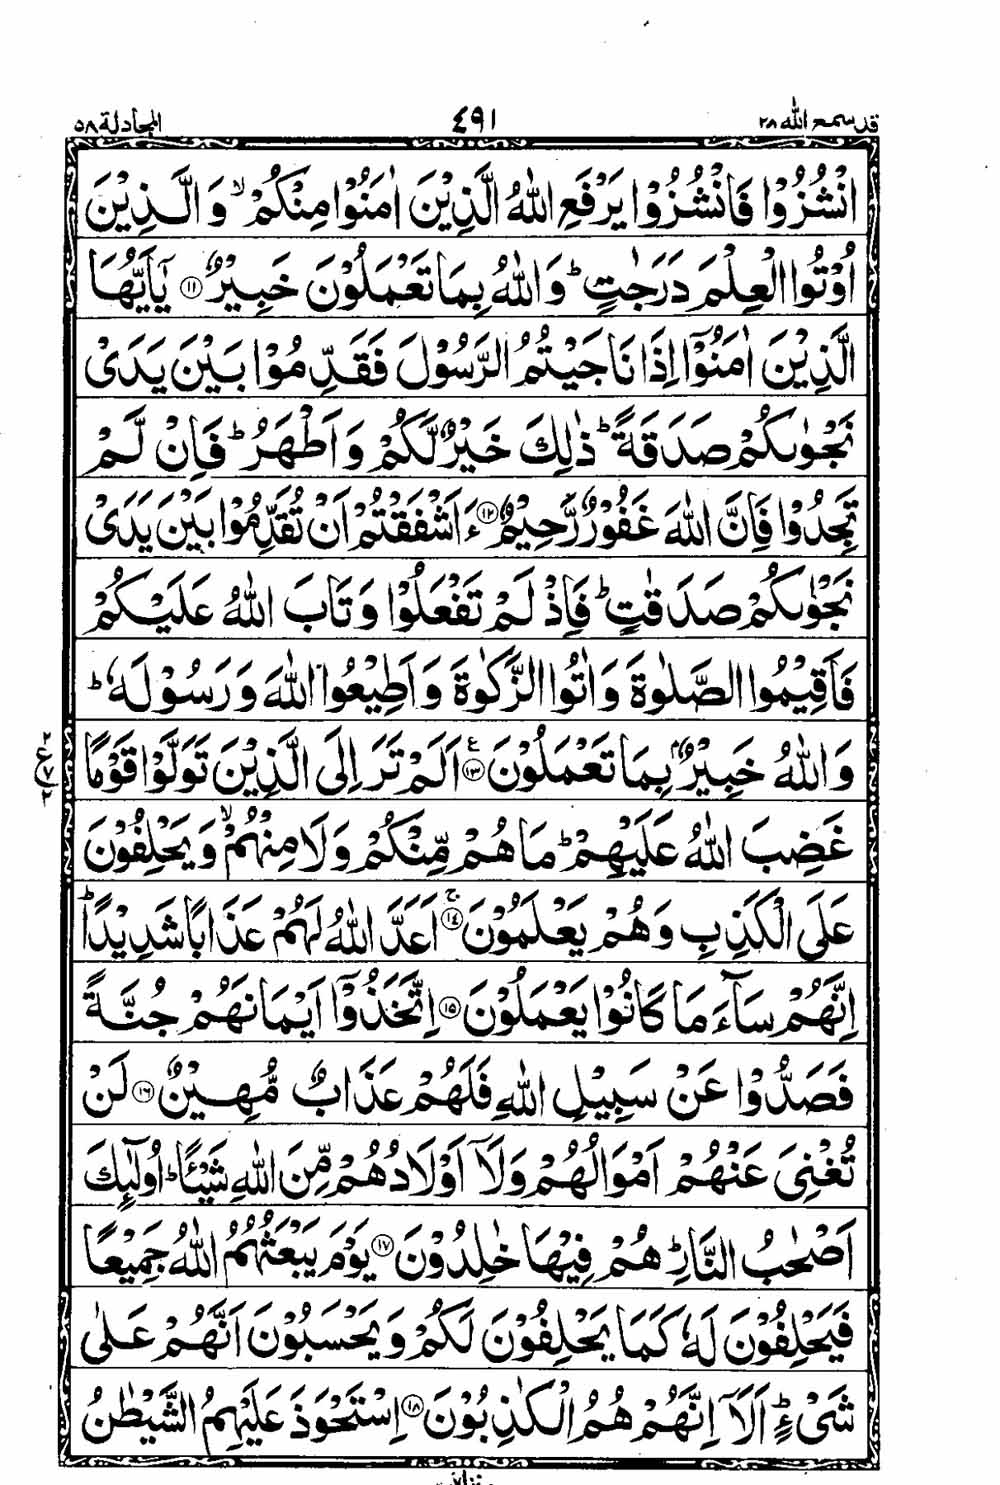 قد سمع الله ۲۸ ۴۹۱ المجادلة ۵۸
انْشُزُوْا فَانْشُزُوْا يَرْفَعِ اللّٰهُ الَّذِيْنَ اٰمَنُوْا مِنْكُمْ ۙ وَالَّذِيْنَ
اُوْتُوا الْعِلْمَ دَرَجٰتٍ ؕ وَاللّٰهُ بِمَا تَعْمَلُوْنَ خَبِيْرٌ ۝۱۱ يٰۤاَيُّهَا
الَّذِيْنَ اٰمَنُوْۤا اِذَا نَاجَيْتُمُ الرَّسُوْلَ فَقَدِّمُوْا بَيْنَ يَدَىْ
نَجْوٰىكُمْ صَدَقَةً ؕ ذٰلِكَ خَيْرٌ لَّكُمْ وَاَطْهَرُ ؕ فَاِنْ لَّمْ
تَجِدُوْا فَاِنَّ اللّٰهَ غَفُوْرٌ رَّحِيْمٌ ۝۱۲ ءَاَشْفَقْتُمْ اَنْ تُقَدِّمُوْا بَيْنَ يَدَىْ
نَجْوٰىكُمْ صَدَقٰتٍ ؕ فَاِذْ لَمْ تَفْعَلُوْا وَتَابَ اللّٰهُ عَلَيْكُمْ
فَاَقِيْمُوا الصَّلٰوةَ وَاٰتُوا الزَّكٰوةَ وَاَطِيْعُوا اللّٰهَ وَرَسُوْلَهٗ ؕ
وَاللّٰهُ خَبِيْرٌۢ بِمَا تَعْمَلُوْنَ ۝۱۳ ع اَلَمْ تَرَ اِلَى الَّذِيْنَ تَوَلَّوْا قَوْمًا
۲ ع ۷ ۲
غَضِبَ اللّٰهُ عَلَيْهِمْ ؕ مَا هُمْ مِّنْكُمْ وَلَا مِنْهُمْ ۙ وَيَحْلِفُوْنَ
عَلَى الْكَذِبِ وَهُمْ يَعْلَمُوْنَ ۝۱۴ ج اَعَدَّ اللّٰهُ لَهُمْ عَذَابًا شَدِيْدًا ؕ
اِنَّهُمْ سَآءَ مَا كَانُوْا يَعْمَلُوْنَ ۝۱۵ اِتَّخَذُوْۤا اَيْمَانَهُمْ جُنَّةً
فَصَدُّوْا عَنْ سَبِيْلِ اللّٰهِ فَلَهُمْ عَذَابٌ مُّهِيْنٌ ۝۱۶ لَنْ
تُغْنِىَ عَنْهُمْ اَمْوَالُهُمْ وَلَاۤ اَوْلَادُهُمْ مِّنَ اللّٰهِ شَيْـًٔا ؕ اُولٰٓئِكَ
اَصْحٰبُ النَّارِ ؕ هُمْ فِيْهَا خٰلِدُوْنَ ۝۱۷ يَوْمَ يَبْعَثُهُمُ اللّٰهُ جَمِيْعًا
فَيَحْلِفُوْنَ لَهٗ كَمَا يَحْلِفُوْنَ لَكُمْ وَيَحْسَبُوْنَ اَنَّهُمْ عَلٰى
شَىْءٍ ؕ اَلَاۤ اِنَّهُمْ هُمُ الْكٰذِبُوْنَ ۝۱۸ اِسْتَحْوَذَ عَلَيْهِمُ الشَّيْطٰنُ